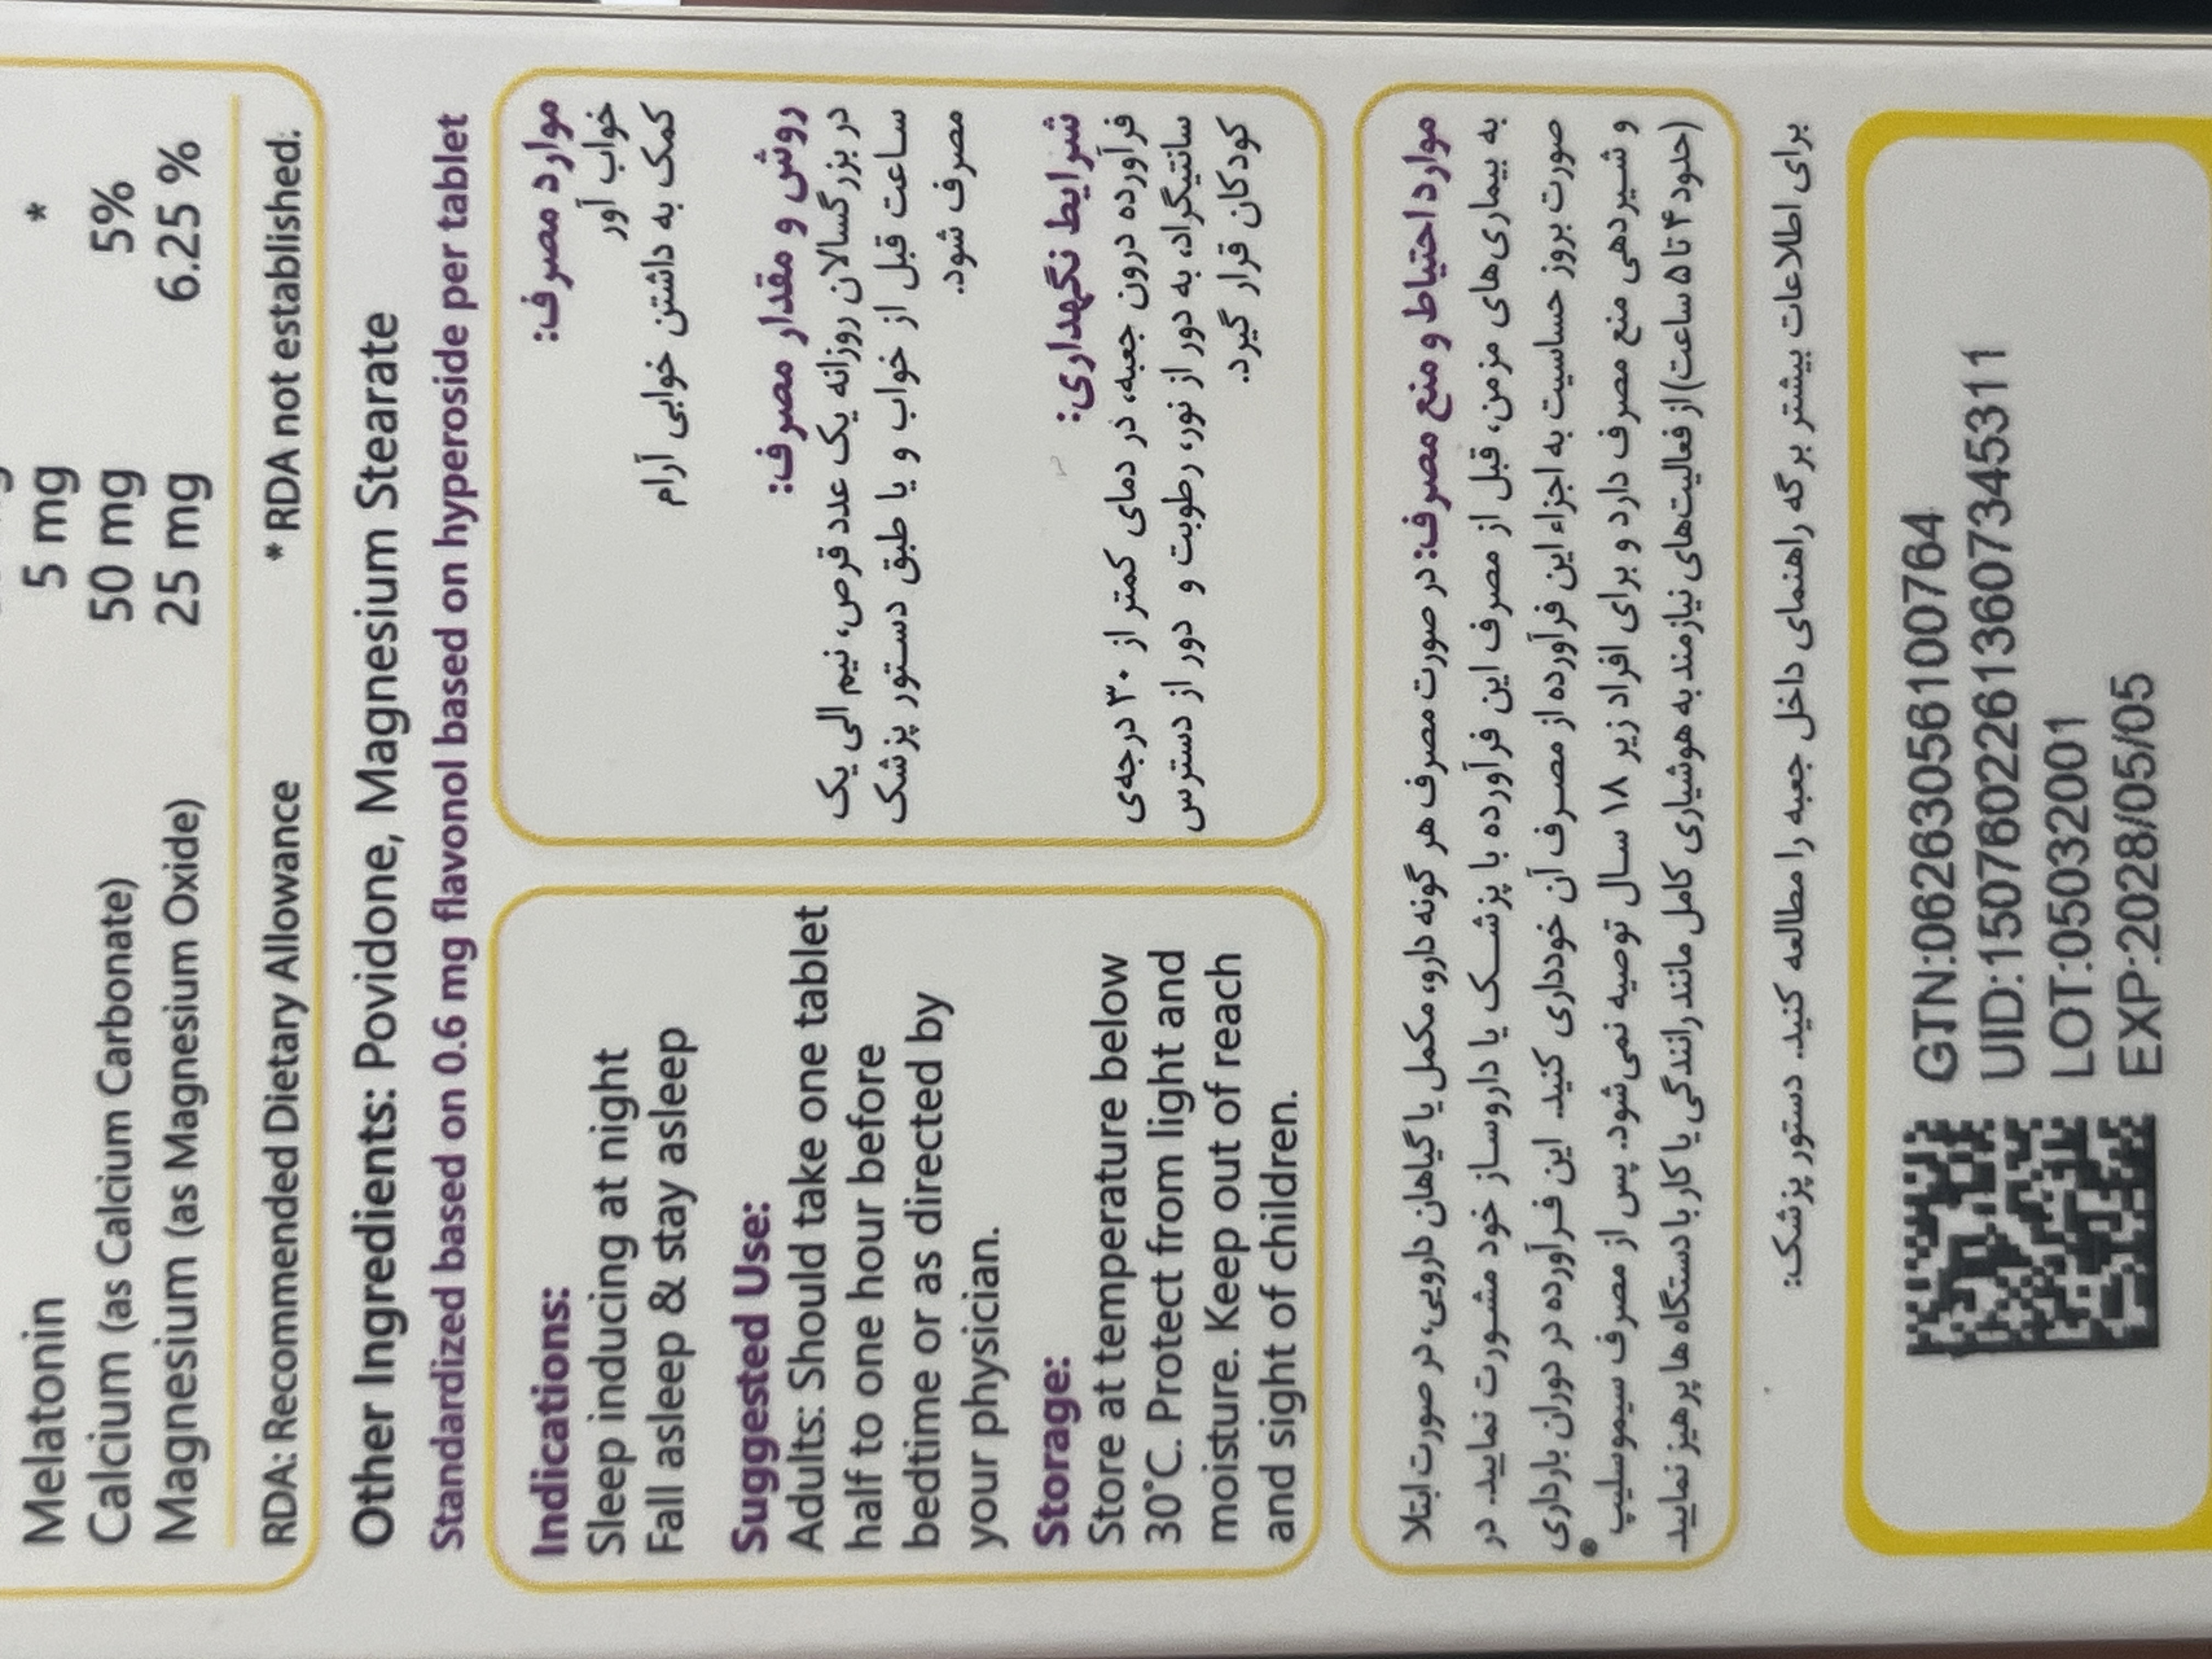 Melatonin 5 mg *
Calcium (as Calcium Carbonate) 50 mg 5%
Magnesium (as Magnesium Oxide) 25 mg 6.25 %
RDA: Recommended Dietary Allowance * RDA not established.
Other Ingredients: Povidone, Magnesium Stearate
Standardized based on 0.6 mg flavonol based on hyperoside per tablet
Indications:
Sleep inducing at night
Fall asleep & stay asleep
Suggested Use:
Adults: Should take one tablet
half to one hour before
bedtime or as directed by
your physician.
Storage:
Store at temperature below
30°C. Protect from light and
moisture. Keep out of reach
and sight of children.
موارد مصرف:
خواب آور
کمک به داشتن خوابی آرام
روش و مقدار مصرف:
در بزرگسالان روزانه یک عدد قرص، نیم الی یک
ساعت قبل از خواب و یا طبق دستور پزشک
مصرف شود.
شرایط نگهداری:
فرآورده درون جعبه، در دمای کمتر از ۳۰ درجه‌ی
سانتیگراد، به دور از نور، رطوبت و دور از دسترس
کودکان قرار گیرد.
موارد احتیاط و منع مصرف: در صورت مصرف هر گونه دارو، مکمل یا گیاهان دارویی، در صورت ابتلا
به بیماری‌های مزمن، قبل از مصرف این فرآورده با پزشک یا داروساز خود مشورت نمایید. در
صورت بروز حساسیت به اجزاء این فرآورده از مصرف آن خودداری کنید. این فرآورده در دوران بارداری
و شیردهی منع مصرف دارد و برای افراد زیر ۱۸ سال توصیه نمی‌شود. پس از مصرف سیموسلیپ®
(حدود ۴ تا ۵ ساعت) از فعالیت‌های نیازمند به هوشیاری کامل مانند رانندگی یا کار با دستگاه ها پرهیز نمایید
برای اطلاعات بیشتر برگه راهنمای داخل جعبه را مطالعه کنید. دستور پزشک:
GTN:06263056100764
UID:15076022613607345311
LOT:05032001
EXP:2028/05/05